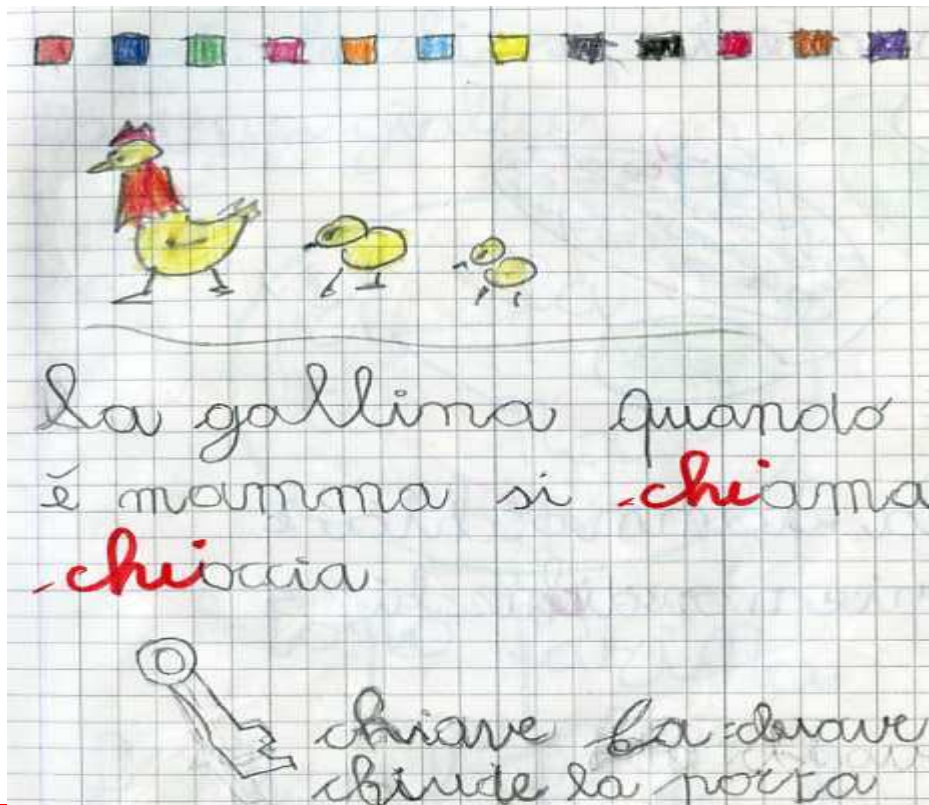 La gallina quando
è mamma si chiama
chioccia
chiave La chiave
chiude la porta